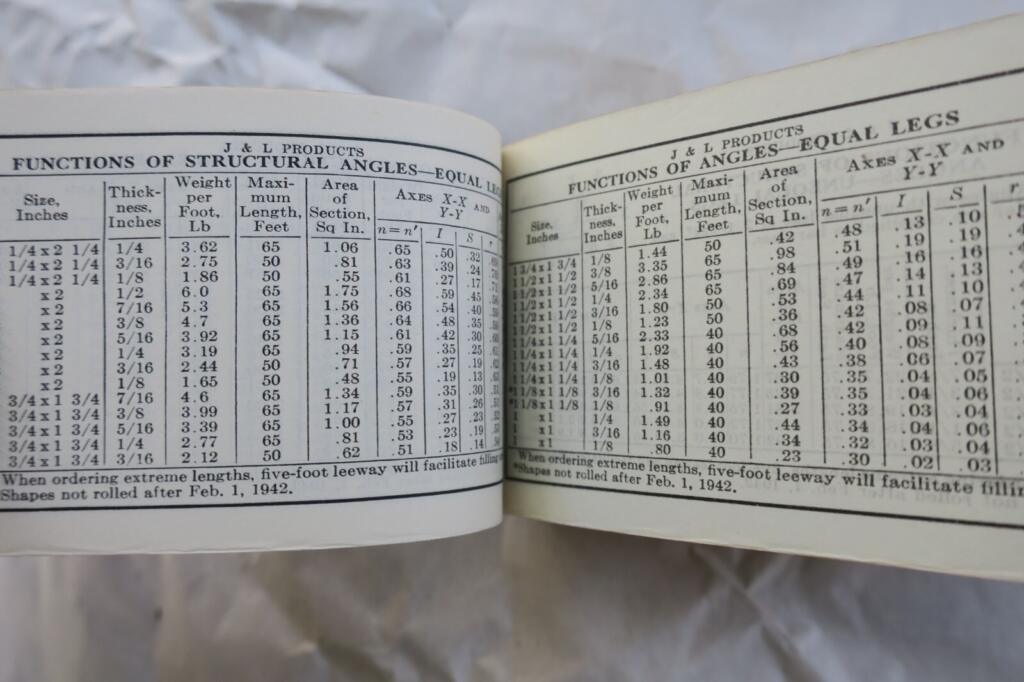 J & L PRODUCTS
FUNCTIONS OF STRUCTURAL ANGLES—EQUAL LEG
Size, Inches Thick-ness, Inches Weight per Foot, Lb Maxi-mum Length, Feet Area of Section, Sq In. AXES X-X AND Y-Y
n = n' I S r
1/4 x 2 1/4 1/4 3.62 65 1.06 .65 .50 .32
1/4 x 2 1/4 3/16 2.75 50 .81 .63 .39 .24
1/4 x 2 1/4 1/8 1.86 50 .55 .61 .27 .17
x 2 1/2 6.0 65 1.75 .68 .59 .45
x 2 7/16 5.3 65 1.56 .66 .54 .40
x 2 3/8 4.7 65 1.36 .64 .48 .35
x 2 5/16 3.92 65 1.15 .61 .42 .30
x 2 1/4 3.19 65 .94 .59 .35 .25
x 2 3/16 2.44 50 .71 .57 .27 .19
x 2 1/8 1.65 50 .48 .55 .19 .13
3/4 x 1 3/4 7/16 4.6 65 1.34 .59 .35 .30
3/4 x 1 3/4 3/8 3.99 65 1.17 .57 .31 .26
3/4 x 1 3/4 5/16 3.39 65 1.00 .55 .27 .23
3/4 x 1 3/4 1/4 2.77 65 .81 .53 .23 .19
3/4 x 1 3/4 3/16 2.12 50 .62 .51 .18 .14
When ordering extreme lengths, five-foot leeway will facilitate filling
Shapes not rolled after Feb. 1, 1942.
J & L PRODUCTS
FUNCTIONS OF ANGLES—EQUAL LEGS
Size, Inches Thick-ness, Inches Weight per Foot, Lb Maxi-mum Length, Feet Area of Section, Sq In. AXES X-X AND Y-Y
n = n' I S r
1 3/4 x 1 3/4 1/8 1.44 50 .42 .48 .13 .10
1 1/2 x 1 1/2 3/8 3.35 65 .98 .51 .19 .19
1 1/2 x 1 1/2 5/16 2.86 65 .84 .49 .16 .16
1 1/2 x 1 1/2 1/4 2.34 65 .69 .47 .14 .13
1 1/2 x 1 1/2 3/16 1.80 50 .53 .44 .11 .10
1 1/2 x 1 1/2 1/8 1.23 50 .36 .42 .08 .07
1 1/4 x 1 1/4 5/16 2.33 40 .68 .42 .09 .11
1 1/4 x 1 1/4 1/4 1.92 40 .56 .40 .08 .09
1 1/4 x 1 1/4 3/16 1.48 40 .43 .38 .06 .07
1 1/4 x 1 1/4 1/8 1.01 40 .30 .35 .04 .05
*1 1/8 x 1 1/8 3/16 1.32 40 .39 .35 .04 .06
*1 1/8 x 1 1/8 1/8 .91 40 .27 .33 .03 .04
1 x 1 1/4 1.49 40 .44 .34 .04 .06
1 x 1 3/16 1.16 40 .34 .32 .03 .04
1 x 1 1/8 .80 40 .23 .30 .02 .03
When ordering extreme lengths, five-foot leeway will facilitate fillin
*Shapes not rolled after Feb. 1, 1942.